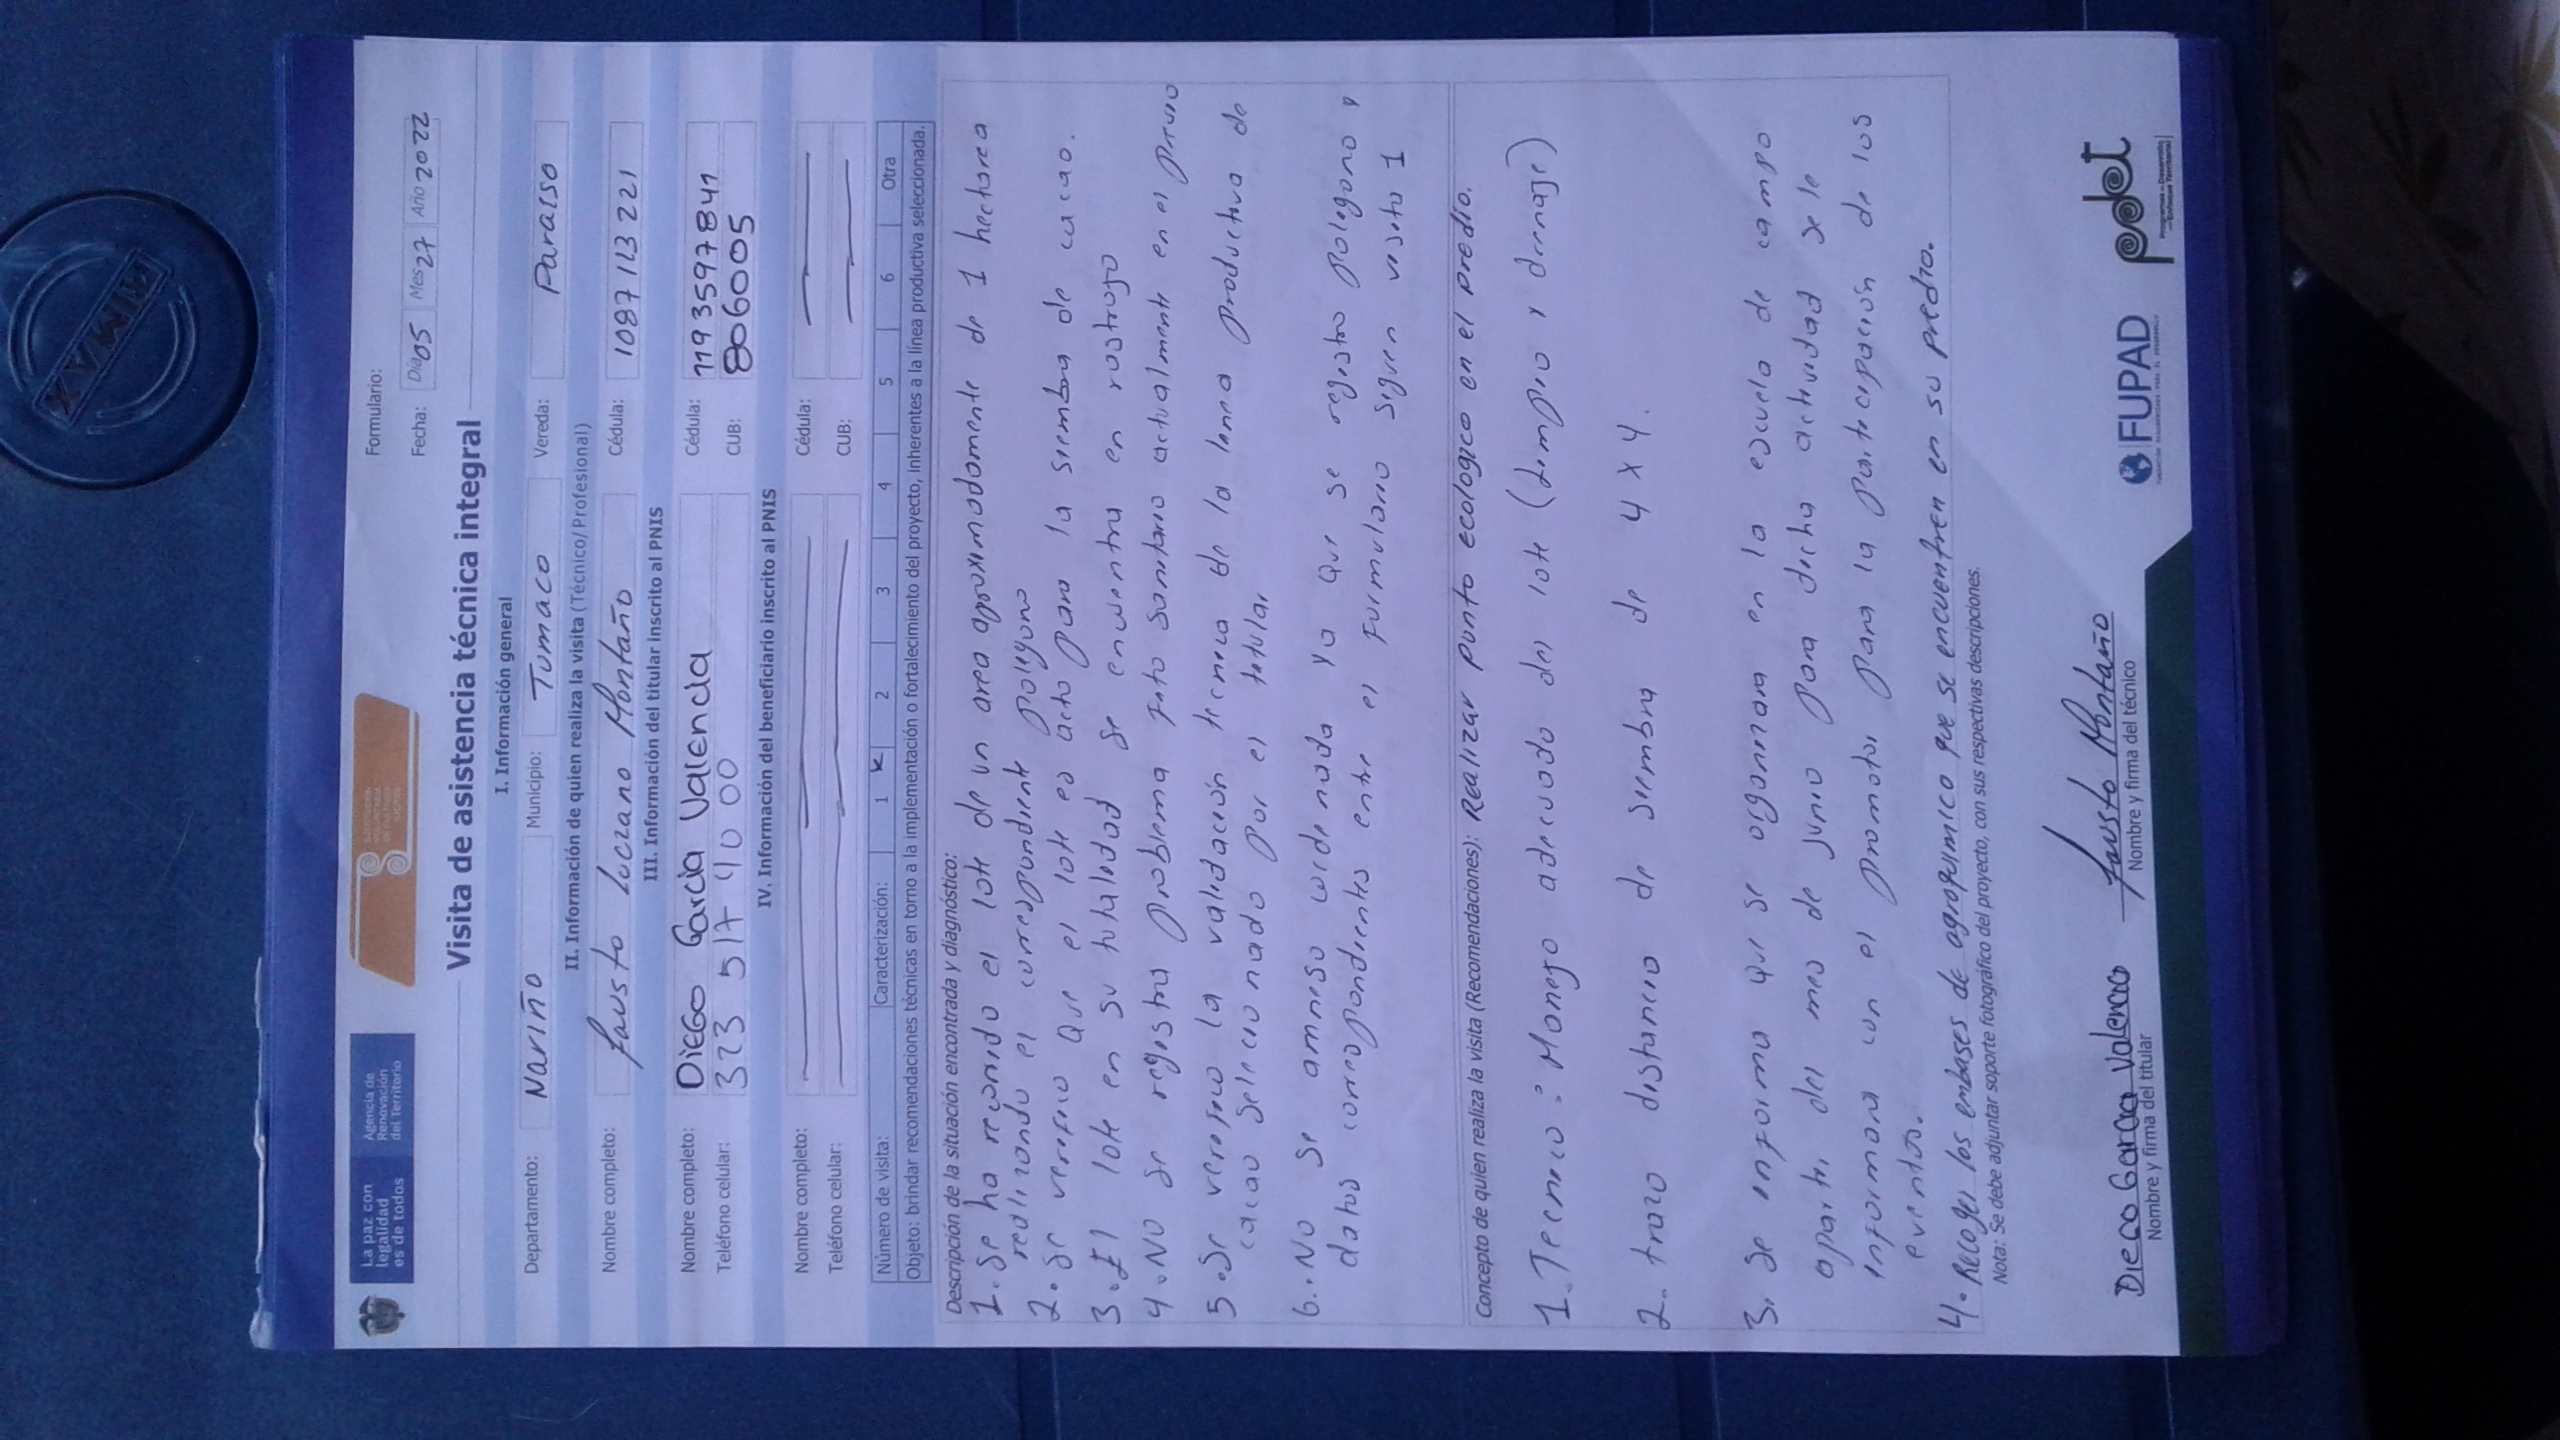 La paz con
legalidad
es de todos
Agencia de
Renovación
del Territorio
Formulario:
Fecha: Día 05 Mes 27 Año 2022
Visita de asistencia técnica integral
I. Información general
Departamento: Nariño Municipio: Tumaco Vereda: Paraiso
II. Información de quien realiza la visita (Técnico/Profesional)
Nombre completo: fausto lozano Montaño Cédula: 1087113221
III. Información del titular inscrito al PNIS
Nombre completo: Diego Garcia Valencia Cédula: 1193597841
Teléfono celular: 323 517 40 00 CUB: 806005
IV. Información del beneficiario inscrito al PNIS
Nombre completo: Cédula:
Teléfono celular: CUB:
Número de visita: Caracterización: 1 x 2 3 4 5 6 Otra
Objeto: brindar recomendaciones técnicas en torno a la implementación o fortalecimiento del proyecto, inherentes a la línea productiva seleccionada.
Descripción de la situación encontrada y diagnóstico:
1. Se ha recorrido el lote de un area aproximadamente de 1 hectarea
realizando el correspondiente poligono
2. Se verifico que el lote es acto para la siembra de cacao.
3. El lote en su totalidad se encuentra en rastrojo
4. No se registra problema fito sanitario actualmente en el
5. Se verifico la validación tecnica de la linea productiva de
cacao seleccionado por el titular
6. No se anneso cordenada ya que se registro poligono y
datos correspondientes entre el formulario siguen visita 1
Concepto de quien realiza la visita (Recomendaciones): Realizar punto ecologico en el predio.
1. Tecnico: Manejo adecuado del lote (limpio y drenaje)
2. trazo distancia de siembra de 4 x 4.
3. se informa que se organizara en la escuela de campo
apartir del mes de junio para dicha actividad se le
informara con el promotor para la participación de los
eventos.
4. Recoger los embases de agroquimico que se encuentren en su predio.
Nota: Se debe adjuntar soporte fotográfico del proyecto, con sus respectivas descripciones.
Diego Garcia Valencia
Nombre y firma del titular
fausto Montaño
Nombre y firma del técnico
FUPAD
pdet
Programas de Desarrollo
con Enfoque Territorial
AIMAX